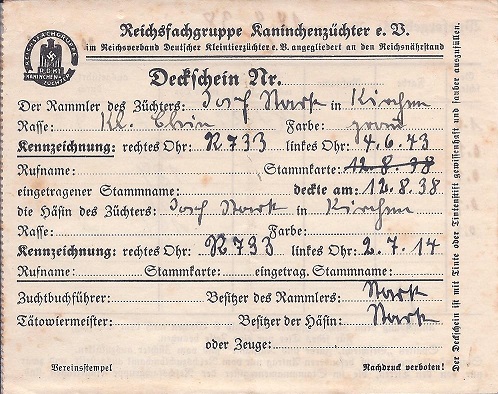 Reichsfachgruppe Kaninchenzüchter e. V.
im Reichsverband Deutscher Kleintierzüchter e. V. angegliedert an den Reichsnährstand
REICHSFACHGRUPPE
KANINCHEN-
ZÜCHTER
Deckschein Nr.
Der Rammler des Züchters: Josef Stark in Kirchen
Rasse: Kl. Chin Farbe: grau
Kennzeichnung: rechtes Ohr: R 733 linkes Ohr: 4.6.43
Rufname: Stammkarte: 12.8.38
eingetragener Stammname: deckte am: 12.8.38
die Häsin des Züchters: Josef Stark in Kirchen
Rasse: Farbe:
Kennzeichnung: rechtes Ohr: R 733 linkes Ohr: 2.7.14
Rufname: Stammkarte: eingetrag. Stammname:
Zuchtbuchführer: Besitzer des Rammlers: Stark
Tätowiermeister: Besitzer der Häsin: Stark
oder Zeuge:
Vereinsstempel Nachdruck verboten!
Der Deckschein ist mit Tinte oder Tintenstift gewissenhaft und sauber auszufüllen.